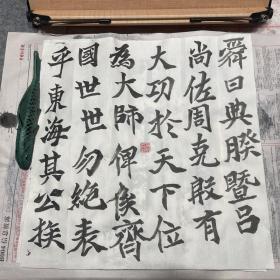 舜曰典朕暨吕
尚佐周克殷有
大功於天下位
為大師俾侯齊
國世世勿絶表
乎東海其公族